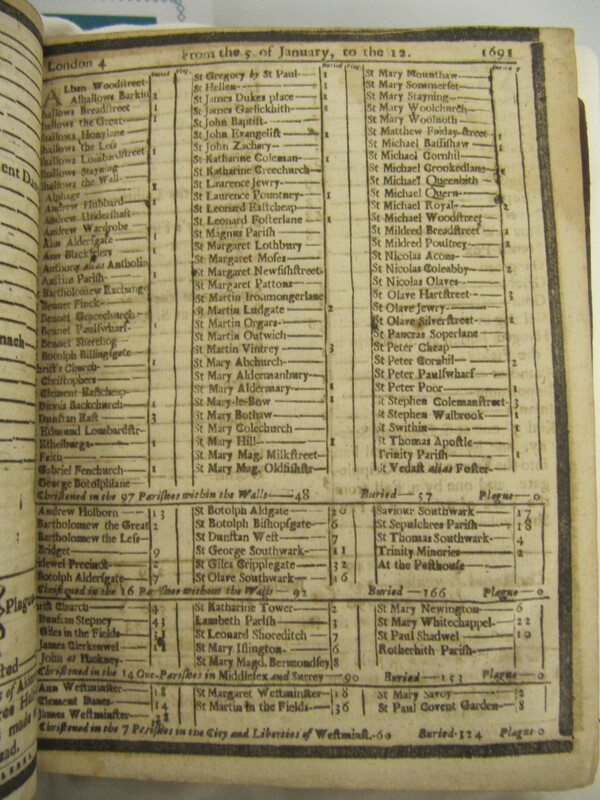 London 4 From the 5. of January, to the 12. 1691
Buried Plag. Buried Plag. Buried P
Alban Woodstreet
Alhallows Barkin 2
hallows Breadstreet 1
hallows the Great 1
hallows Honylane
hallows the Less
hallows Lombardstreet 1
hallows Stayning
hallows the Wall
Alphage 1
Andrew Hubbard 1
Andrew Undershaft
Andrew Wardrobe
Ann Aldersgate
Ann Blackfriers
Antholin
Austins Parish
Bartholomew Exchange
Bennet Finck
Bennet Gracechurch
Bennet Paulswharf
Bennet Sherehog
Botolph Billingsgate
hrist's Church
Christophers
Clement Eastcheap
Dionis Backchurch 1
Dunstan East 3
Edmund Lombardstr
Ethelburga
Faith
Gabriel Fenchurch 1
George Botolphlane
St Gregory by St Paul 1
St Hellen 1
St James Dukes place 1
St James Garlickhith 1
St John Baptist
St John Evangelist
St John Zachary
St Katharine Coleman 1
St Katharine Creechurch
St Laurence Jewry
St Laurence Pountney 1
St Leonard Eastcheap
St Leonard Fosterlane 1
St Magnus Parish
St Margaret Lothbury
St Margaret Moses
St Margaret Newfishstreet
St Margaret Pattons
St Martin Ironmongerlane
St Martin Ludgate 2
St Martin Orgars
St Martin Outwich
St Martin Vintrey 3
St Mary Abchurch
St Mary Aldermanbury
St Mary Aldermary 1
St Mary-le-Bow 1
St Mary Bothaw
St Mary Colechurch
St Mary Hill 1
St Mary Mag. Milkstreet
St Mary Mag. Oldfishstr
St Mary Mounthaw
St Mary Sommerset
St Mary Stayning
St Mary Woolchurch
St Mary Woolnoth
St Matthew Friday-street
St Michael Bassishaw
St Michael Cornhil
St Michael Crookedlane
St Michael Queenhith
St Michael Quern
St Michael Royal
St Michael Woodstreet
St Mildred Breadstreet 1
St Mildred Poultrey 2
St Nicolas Acons
St Nicolas Coleabby 2
St Nicolas Olaves
St Olave Hartstreet 3
St Olave Jewry
St Olave Silverstreet 1
St Pancras Soperlane
St Peter Cheap
St Peter Cornhil 2
St Peter Paulswharf
St Peter Poor 1
St Stephen Colemanstreet 3
St Stephen Walbrook 1
St Swithin 1
St Thomas Apostle
Trinity Parish 1
St Vedast alias Foster
Christned in the 97 Parishes within the Walls 48 Buried 57 Plague 0
Andrew Holborn 13
Bartholomew the Great 2
Bartholomew the Less
Bridget 9
idewel Precinct 2
Botolph Aldersgate 7
St Botolph Aldgate
St Botolph Bishopsgate 6
St Dunstan West 7
St George Southwark 11
St Giles Cripplegate 32
St Olave Southwark 16
Saviour Southwark 17
St Sepulchres Parish 18
St Thomas Southwark 4
Trinity Minories 2
At the Pesthouse
Christned in the 16 Parishes without the Walls 92 Buried 166 Plague 0
rist Church 4
Dunstan Stepney 43
Giles in the Fields
James Clerkenwel
John at Hackney
St Katharine Tower 2
Lambeth Parish 3
St Leonard Shoreditch 7
St Mary Islington 6
St Mary Magd. Bermondsey 8
St Mary Newington 6
St Mary Whitechappel 22
St Paul Shadwel 10
Rotherhith Parish
Christned in the 14 Out-Parishes in Middlesex and Surrey 90 Buried 153 Plague 0
Ann Westminster 18
Clement Danes 14
James Westminster
St Margaret Westminster 18
St Martin in the Fields 36
St Mary Savoy 2
St Paul Covent Garden 8
Christned in the 7 Parishes in the City and Liberties of Westminst. 60 Buried 124 Plague 0